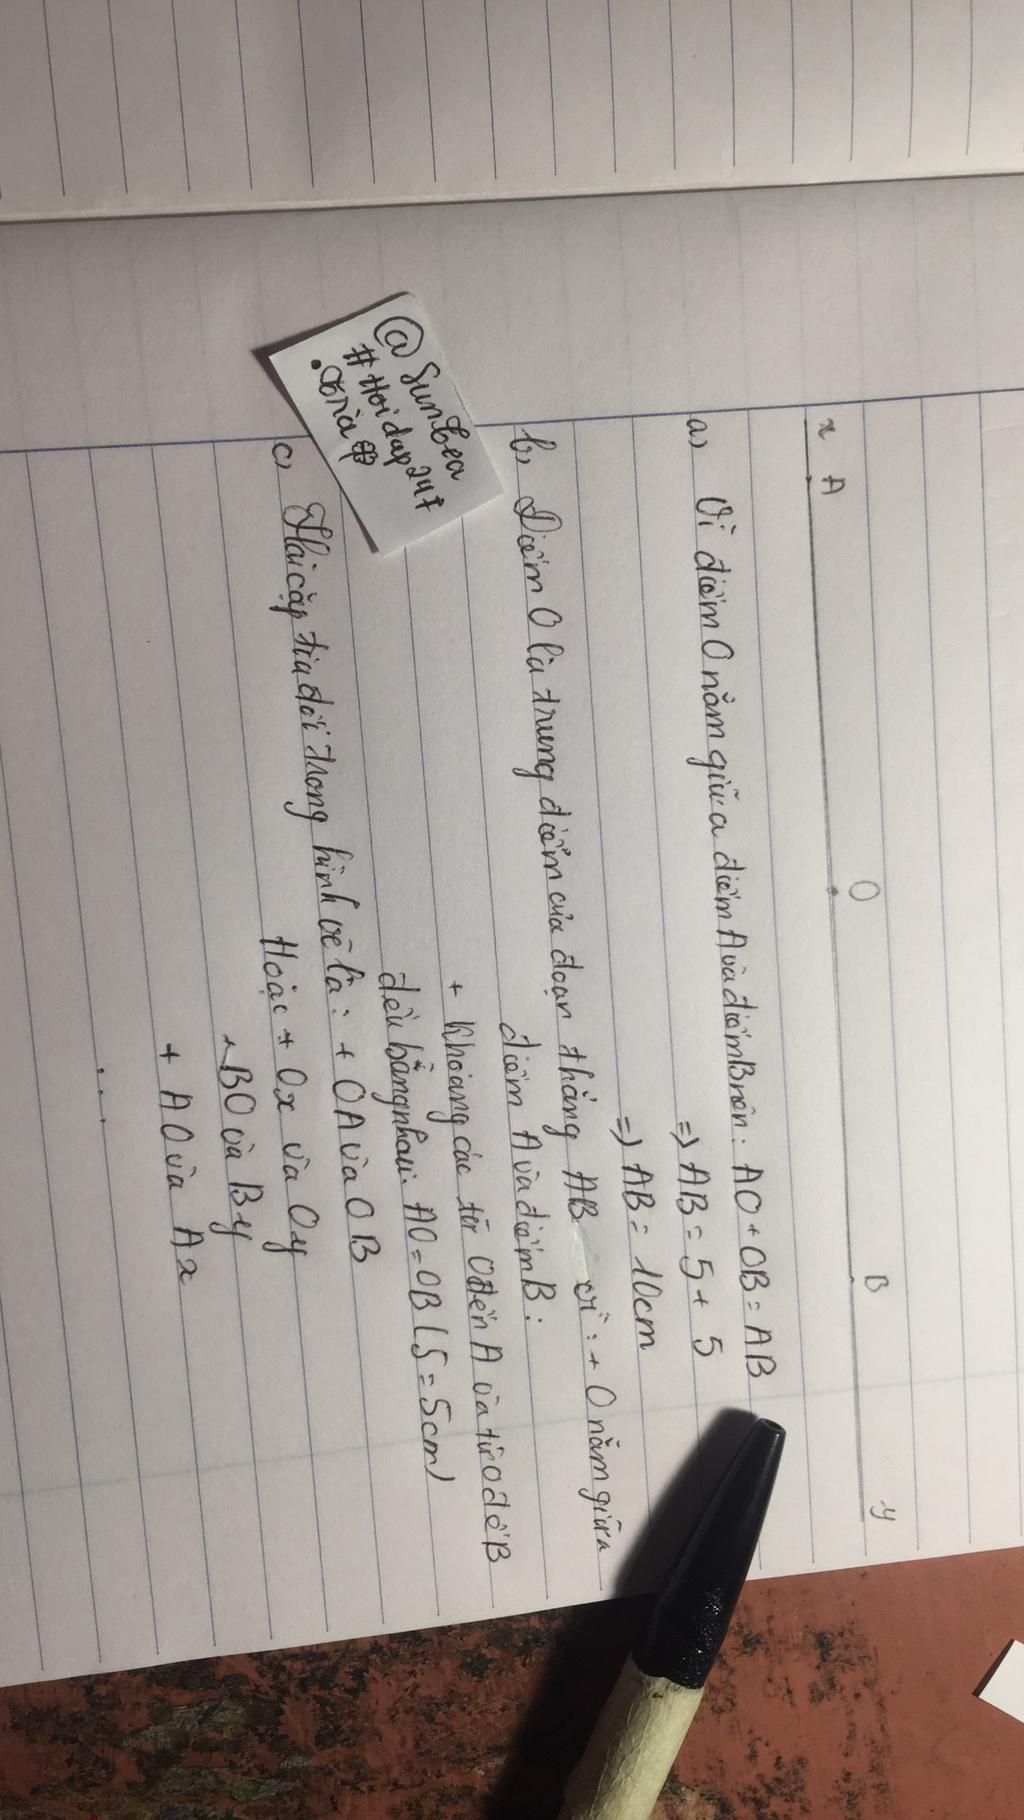 x A O B y
a) Vì điểm O nằm giữa điểm A và điểm B nên: AO + OB = AB
=) AB = 5 + 5
=) AB = 10cm
b) Điểm O là trung điểm của đoạn thẳng AB vì: + O nằm giữa
điểm A và điểm B:
+ Khoảng các từ O đến A và từ O đế B
đều bằng nhau: AO = OB (5 = 5cm)
c) Hai cặp tia đối trong hình vẽ là: + OA và OB
Hoặc + Ox và Oy
+ BO và By
+ AO và Ax
...
@Sunbea
#Hoidap247